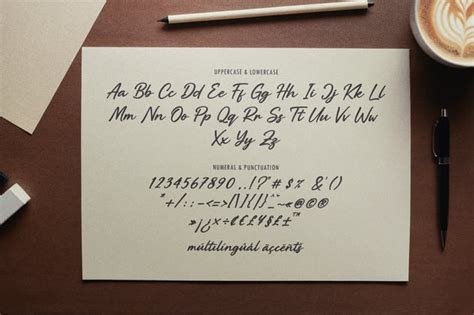 UPPERCASE & LOWERCASE
Aa Bb Cc Dd Ee Ff Gg Hh Ii Jj Kk Ll
Mm Nn Oo Pp Qq Rr Ss Tt Uu Vv Ww
Xx Yy Zz
NUMERALS & PUNCTUATION
1234567890.,!?"# $% &'()
*+/:;-<=>/\][{|}_~<<>>^™
¡¿÷×¢€£¥¤±
multilingual accents